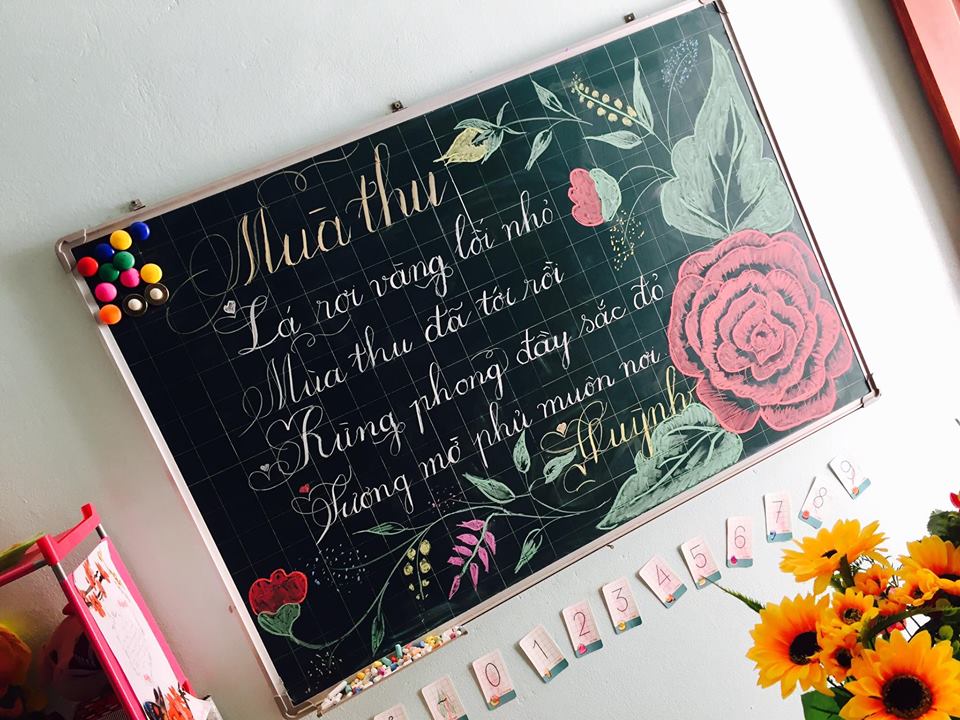 Mùa thu
Lá rơi vàng lối nhỏ
Mùa thu đã tới rồi
Rừng phong đầy sắc đỏ
Sương mờ phủ muôn nơi
Huỳnh
0 1 2 3 4 5 6 7 8 9